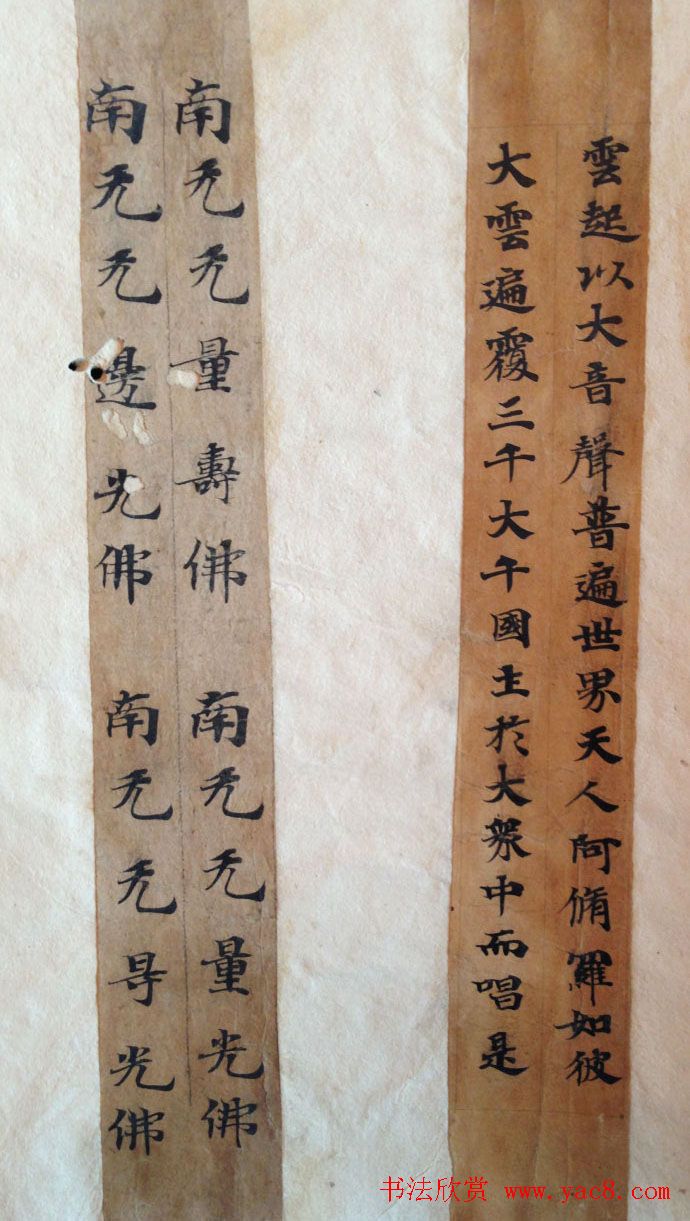 雲起以大音聲普遍世界天人阿脩羅如彼
大雲遍覆三千大千國主於大眾中而唱是
南无无量壽佛 南无无量光佛
南无无邊光佛 南无无㝵光佛
书法欣赏 www.yac8.com